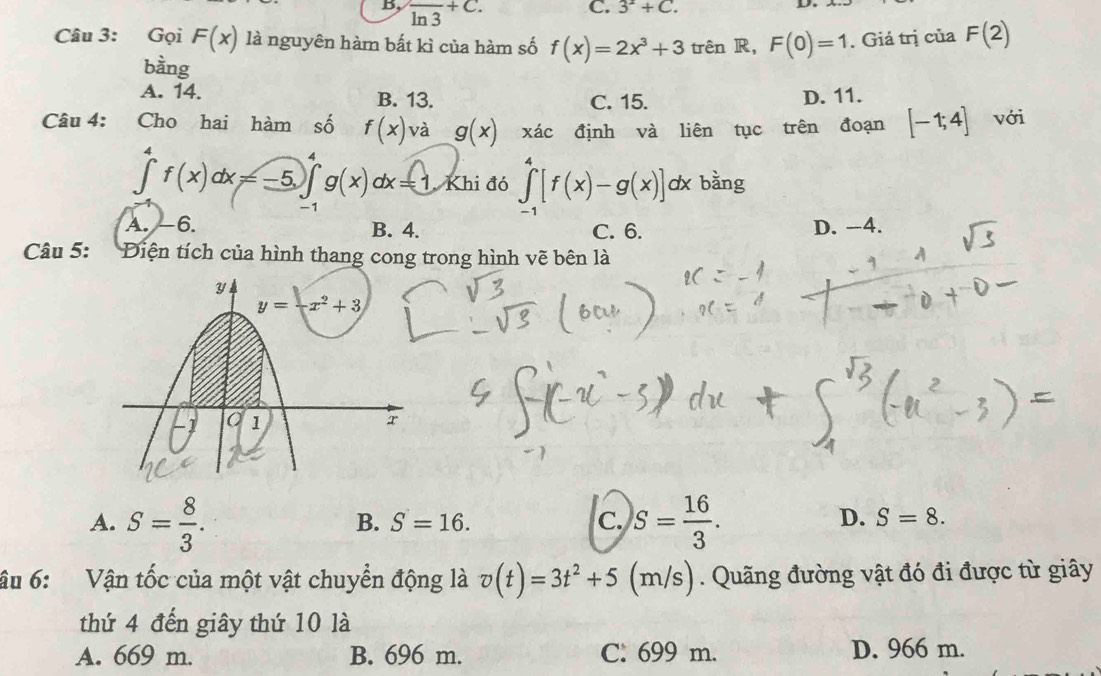 B. /ln 3 + C. C. 3ˣ + C. D.
Câu 3: Gọi F(x) là nguyên hàm bất kì của hàm số f(x) = 2x³ + 3 trên ℝ, F(0) = 1. Giá trị của F(2)
bằng
A. 14. B. 13. C. 15. D. 11.
Câu 4: Cho hai hàm số f(x) và g(x) xác định và liên tục trên đoạn [-1; 4] với
∫₋₁⁴ f(x) dx = -5, ∫₋₁⁴ g(x) dx = 1. Khi đó ∫₋₁⁴ [f(x) - g(x)] dx bằng
A. -6. B. 4. C. 6. D. -4.
√3
Câu 5: Diện tích của hình thang cong trong hình vẽ bên là
y
y = -x² + 3
√3
-√3
x = -1
x = 1
-1 1
- 0 + 0 -
-1 O 1 x
x = x =
S ∫₋₁¹ -(-x² - 3) dx + ∫₁^√3 (-x² - 3) =
A. S = 8/3. B. S = 16. C. S = 16/3. D. S = 8.
âu 6: Vận tốc của một vật chuyển động là v(t) = 3t² + 5 (m/s). Quãng đường vật đó đi được từ giây
thứ 4 đến giây thứ 10 là
A. 669 m. B. 696 m. C. 699 m. D. 966 m.